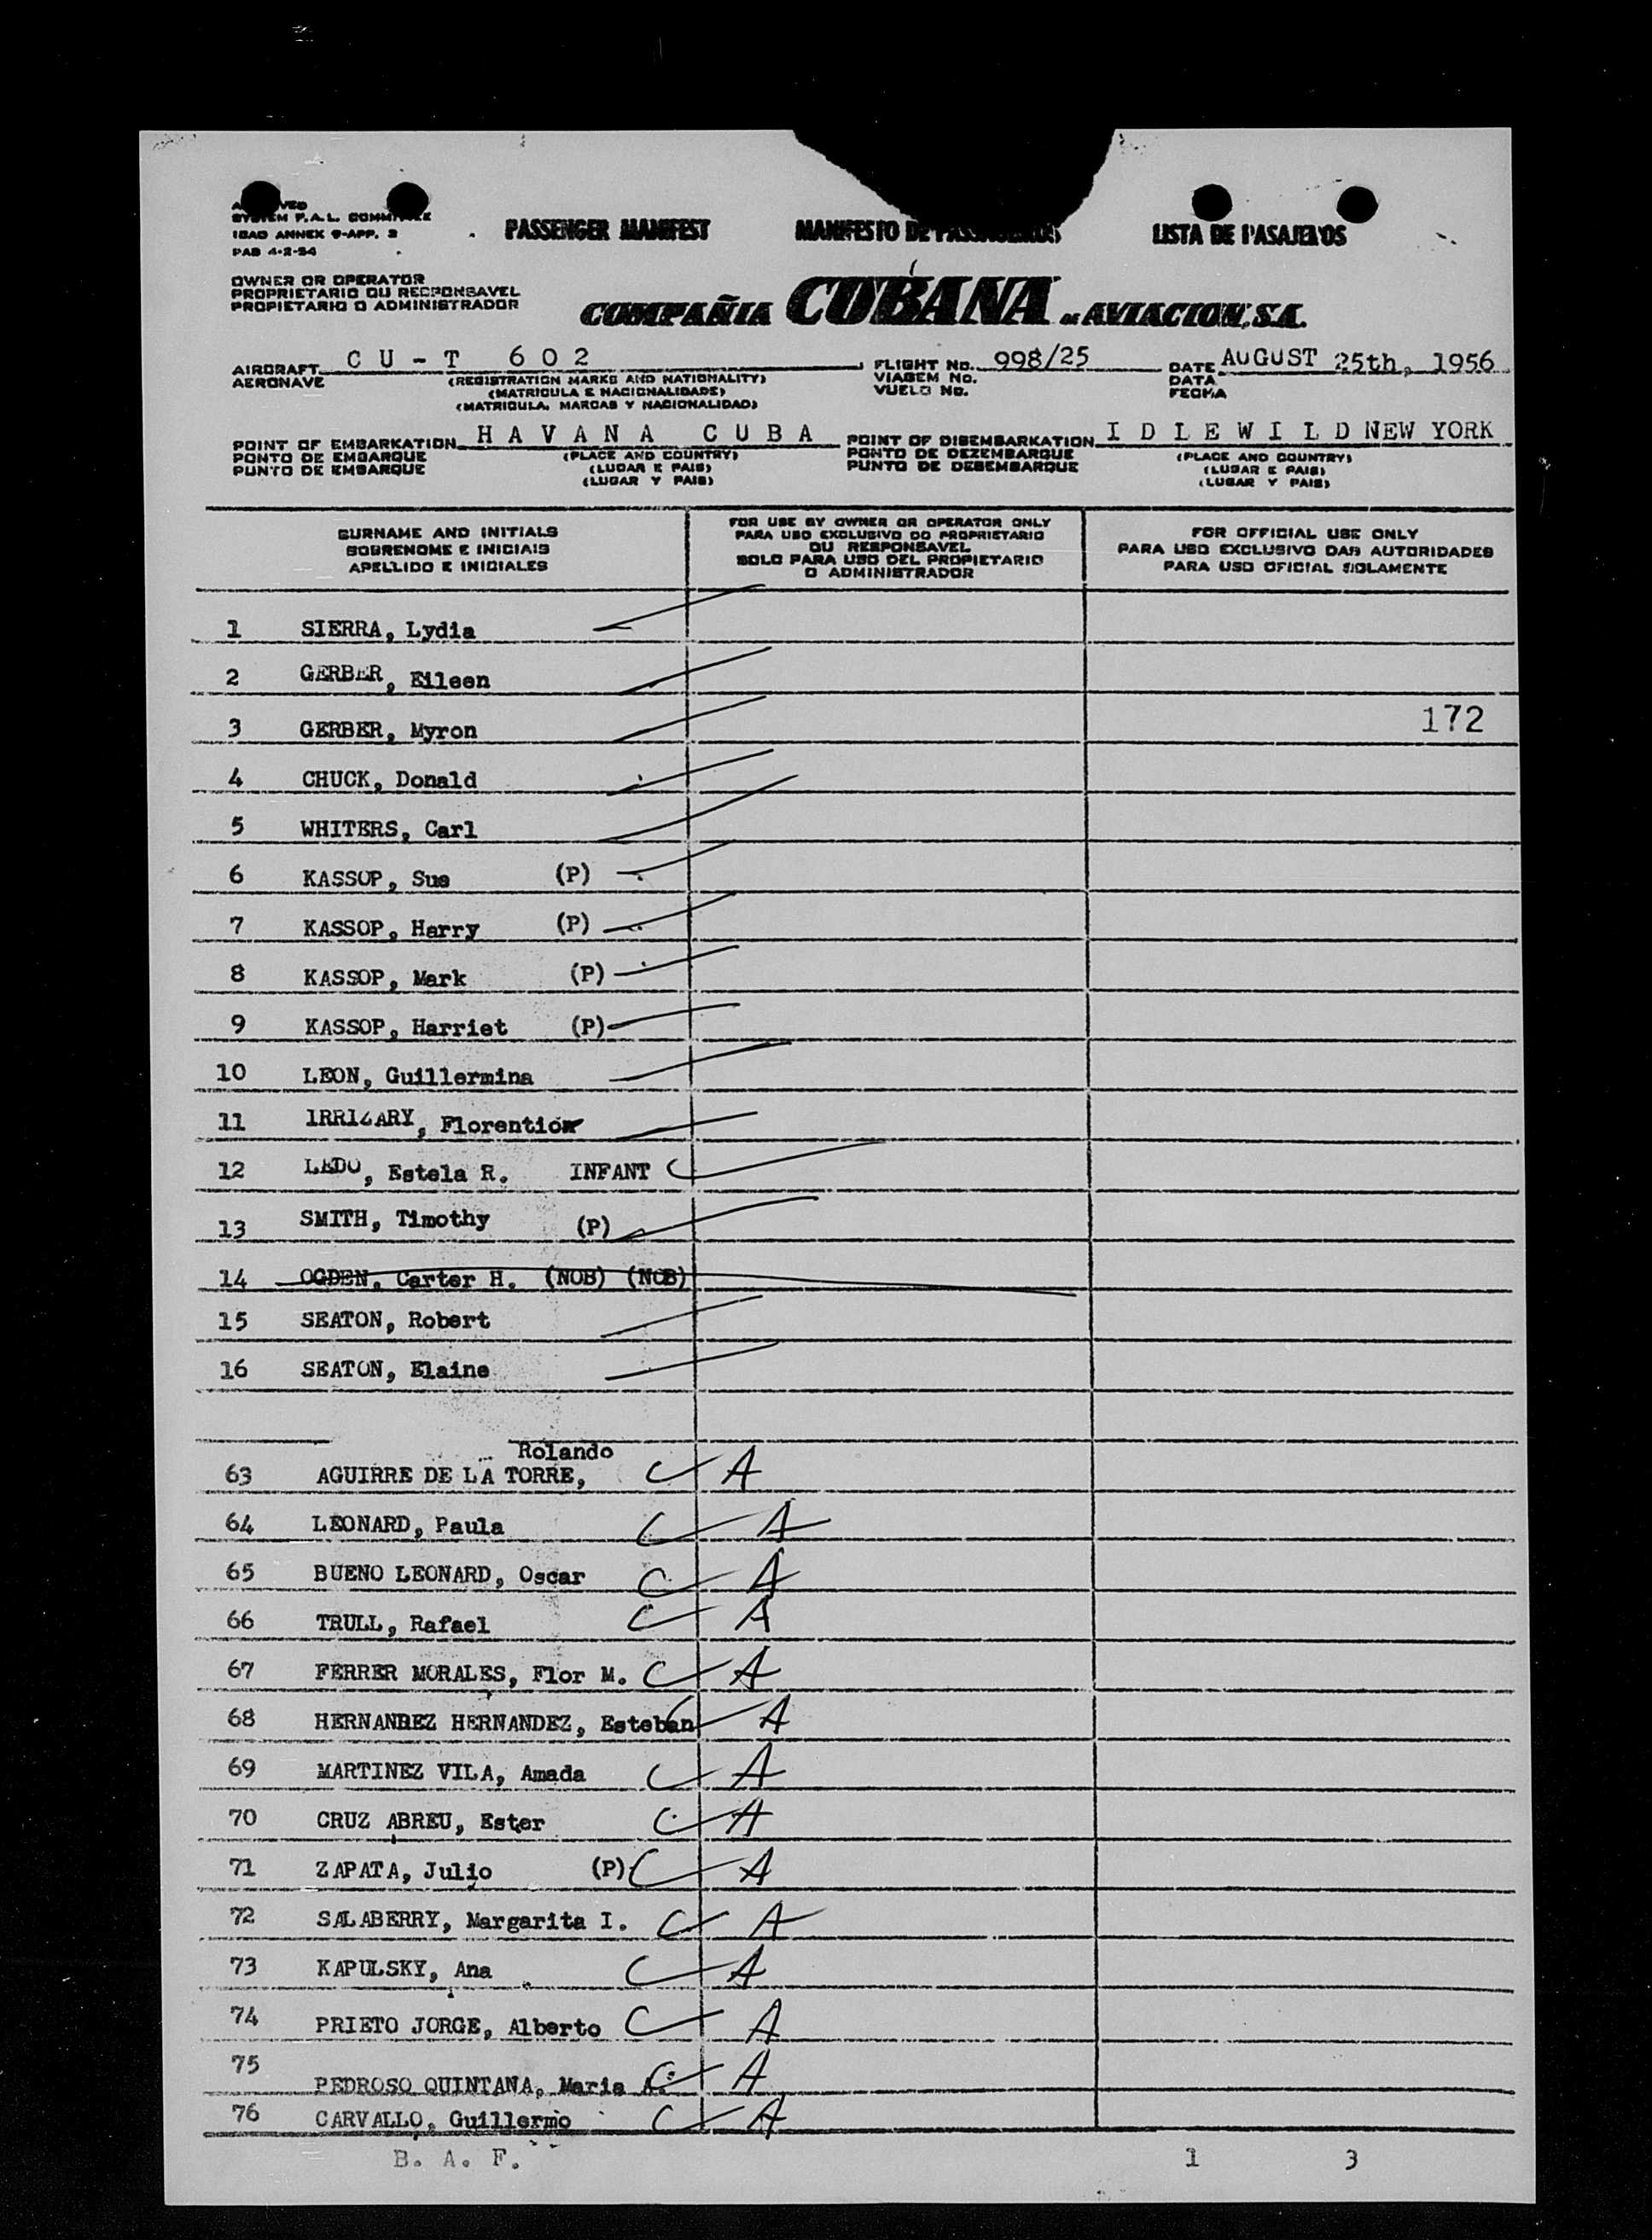 SYSTEM F.A.L. COMMITTEE
ICAO ANNEX 9-APP. 3
PAB 4-2-54
PASSENGER MANIFEST MANIFESTO DE PASAJEROS LISTA DE PASAJEROS
OWNER OR OPERATOR
PROPRIETARIO OU RESPONSAVEL
PROPIETARIO O ADMINISTRADOR
COMPAÑIA CUBANA DE AVIACION, S.A.
AIRCRAFT C U - T 6 0 2 FLIGHT No. 998/25 DATE AUGUST 25th, 1956
AERONAVE (REGISTRATION MARKS AND NATIONALITY) VIAGEM No. DATA
(MATRICULA E NACIONALIDADE) VUELO No. FECHA
(MATRICULA, MARCAS Y NACIONALIDAD)
POINT OF EMBARKATION H A V A N A C U B A POINT OF DISEMBARKATION I D L E W I L D NEW YORK
PONTO DE EMBARQUE (PLACE AND COUNTRY) PONTO DE DEZEMBARQUE (PLACE AND COUNTRY)
PUNTO DE EMBARQUE (LUGAR E PAIS) PUNTO DE DESEMBARQUE (LUGAR E PAIS)
(LUGAR Y PAIS) (LUGAR Y PAIS)
SURNAME AND INITIALS
SOBRENOME E INICIAIS
APELLIDO E INICIALES
FOR USE BY OWNER OR OPERATOR ONLY
PARA USO EXCLUSIVO DO PROPRIETARIO
OU RESPONSAVEL
SOLO PARA USO DEL PROPIETARIO
O ADMINISTRADOR
FOR OFFICIAL USE ONLY
PARA USO EXCLUSIVO DAS AUTORIDADES
PARA USO OFICIAL SOLAMENTE
1 SIERRA, Lydia
2 GERBER, Eileen
3 GERBER, Myron 172
4 CHUCK, Donald
5 WHITERS, Carl
6 KASSOP, Sue (P)
7 KASSOP, Harry (P)
8 KASSOP, Mark (P)
9 KASSOP, Harriet (P)
10 LEON, Guillermina
11 IRRIZARY,
12 LEDO, Estela R. INFANT
13 SMITH, Timothy (P)
14 OGDEN, Carter H. (NOB) (NOB)
15 SEATON, Robert
16 SEATON, Elaine
Rolando
63 AGUIRRE DE LA TORRE, A
64 LEONARD, Paula A
65 BUENO LEONARD, Oscar A
66 TRULL, Rafael A
67 FERRER MORALES, Flor M. A
68 HERNANDEZ HERNANDEZ, Esteban A
69 MARTINEZ VILA, Amada A
70 CRUZ ABREU, Ester A
71 ZAPATA, Julio (P) A
72 SALABERRY, Margarita I. A
73 KAPULSKY, Ana A
74 PRIETO JORGE, Alberto A
75 PEDROSO QUINTANA, Maria A
76 CARVALLO, Guillermo A
B. A. F. 1 3